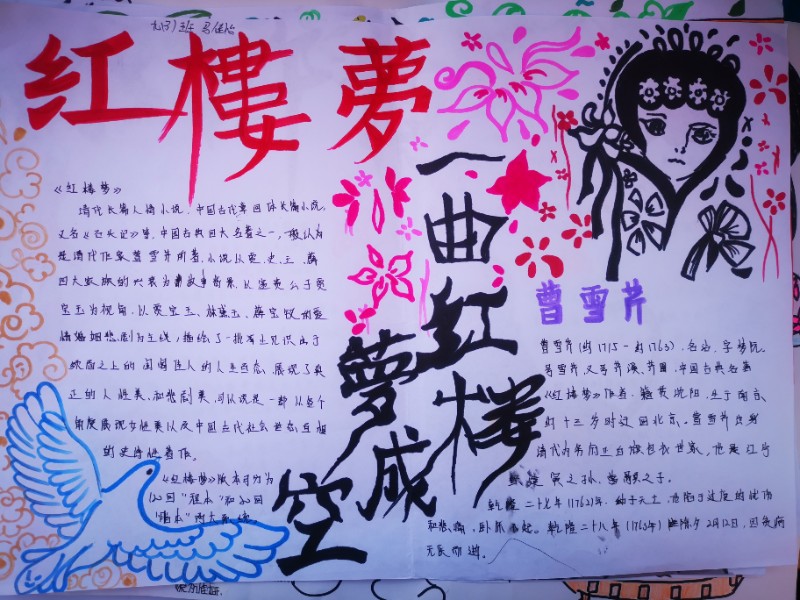 红樓夢
一曲红楼
夢成空
《红楼梦》
清代长篇人情小说,中国古代章回体长篇小说,
又名《石头记》等,中国古典四大名著之一,一般认为
是清代作家曹雪芹所著,小说以贾、史、王、薛
四大家族的兴衰为背景,以富贵公子贾
宝玉为视角,以贾宝玉、林黛玉、薛宝钗的爱
情婚姻悲剧为主线,描绘了一批举止见识出于
须眉之上的闺阁佳人的人生百态,展现了真
正的人性美和悲剧美,可以说是一部从各个
角度展现女性美以及中国古代社会世态百相
的史诗性著作。
《红楼梦》版本可分为
120回“程本”和80回
“脂本”两大系统。
曹雪芹
曹雪芹(约1715-约1763),名沾,字梦阮,
号雪芹,又号芹溪、芹圃,中国古典名著
《红楼梦》作者,籍贯沈阳,生于南京,
约十三岁时迁回北京。曹雪芹出身
清代内务府正白旗包衣世家,他是江宁
寅之孙,
乾隆二十七年(1762),幼子夭亡,他陷于过度的忧伤
和悲痛,卧床不起。乾隆二十八年(1763年)除夕2月12日,因贫病
无医而逝。